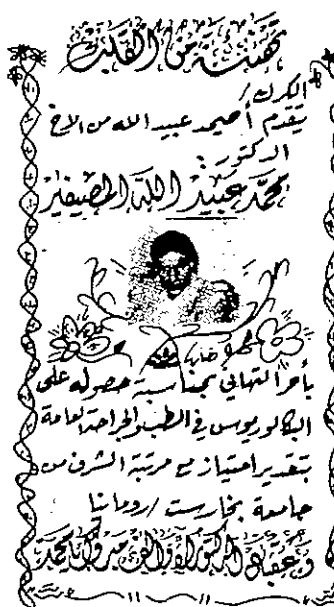 تهنئة من القلب
الكرك /
يتقدم أحمد عبيد الله من الأخ
الدكتور :
محمد عبيد الله المصيفير
بأحر التهاني بمناسبة حصوله على
البكالوريوس في الطب والجراحة العامة
بتقدير امتياز مع مرتبة الشرف من
جامعة بخارست / رومانيا
وعقبال الدكتوراه والف مبروك يا محمد